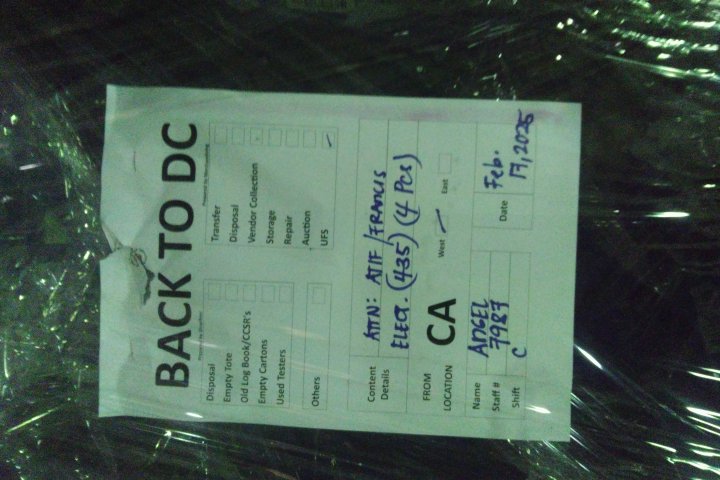 BACK TO DC
Disposal
Empty Tote
Old Log Book/CCSR's
Empty Cartons
Used Testers
Others
Transfer
Disposal
Vendor Collection
Storage
Repair
Auction
UFS
Content Details
ATTN: ATIF/FRANCIS
ELECT. (435) (4 PCS)
FROM LOCATION
CA
West
East
Name ANGEL
Staff # 7987
Shift C
Date Feb. 17, 2025